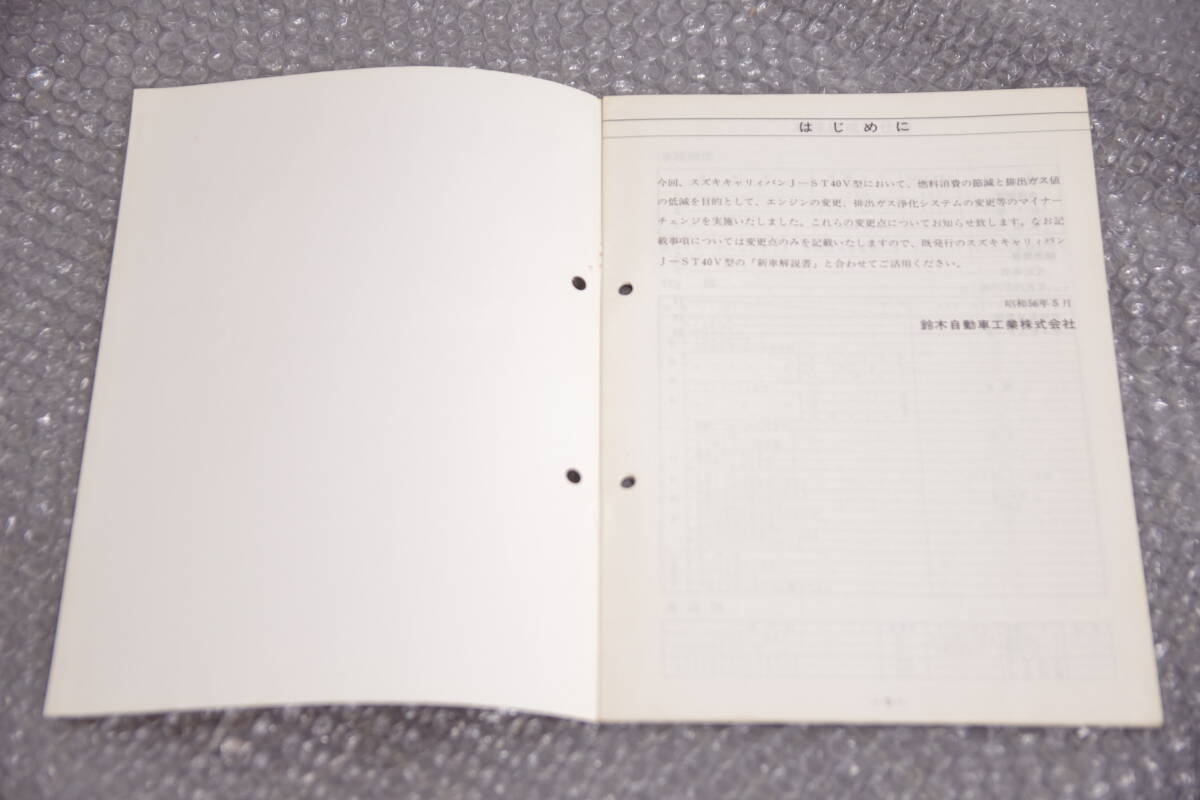 はじめに
今回、スズキキャリィバンJ－ST40V型において、燃料消費の節減と排出ガス値
の低減を目的として、エンジンの変更、排出ガス浄化システムの変更等のマイナー
チェンジを実施いたしました。これらの変更点についてお知らせ致します。なお記
載事項については変更点のみを記載いたしますので、既発行のスズキキャリィバン
J－ST40V型の「新車解説書」と合わせてご活用ください。
昭和56年5月
鈴木自動車工業株式会社